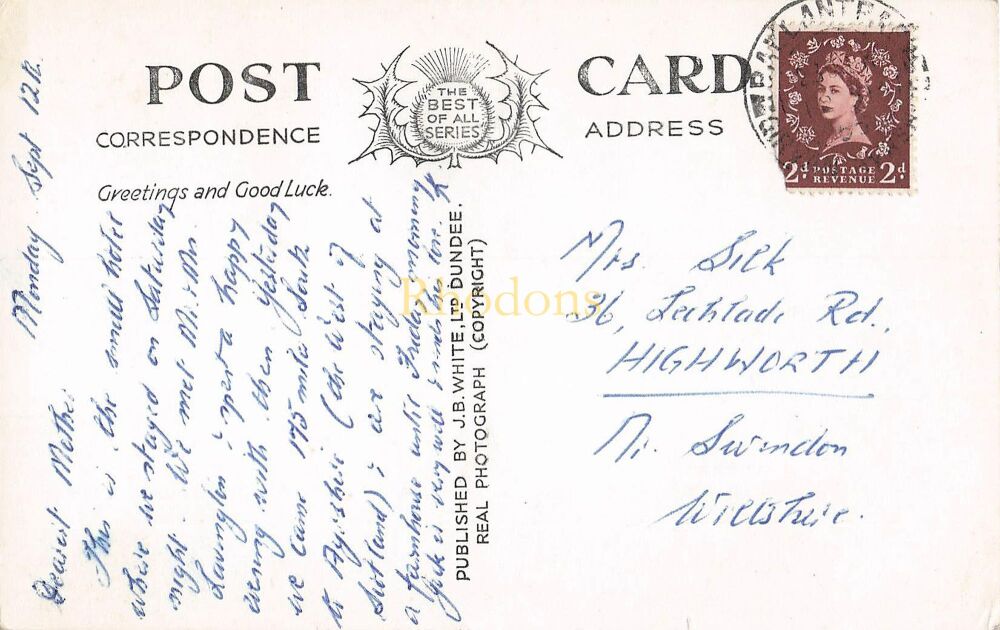 POST CARD
THE
BEST
OF ALL
SERIES
CORRESPONDENCE
ADDRESS
Greetings and Good Luck.
2d POSTAGE REVENUE 2d
Monday Sept 12th.
Dearest Mother
This is the small hotel
where we stayed on Saturday
night. We met Mr. & Mrs.
Lavington & spent a happy
evening with them. Yesterday
we came 175 miles South
to Ayrshire (the West of
Scotland) & are staying at
a farmhouse until Friday morning
is very well & sends his love.
PUBLISHED BY J.B. WHITE, LTD DUNDEE.
REAL PHOTOGRAPH (COPYRIGHT)
Mrs. Silk
36, Lechlade Rd.,
HIGHWORTH
Nr. Swindon
Wiltshire.
Rhodons